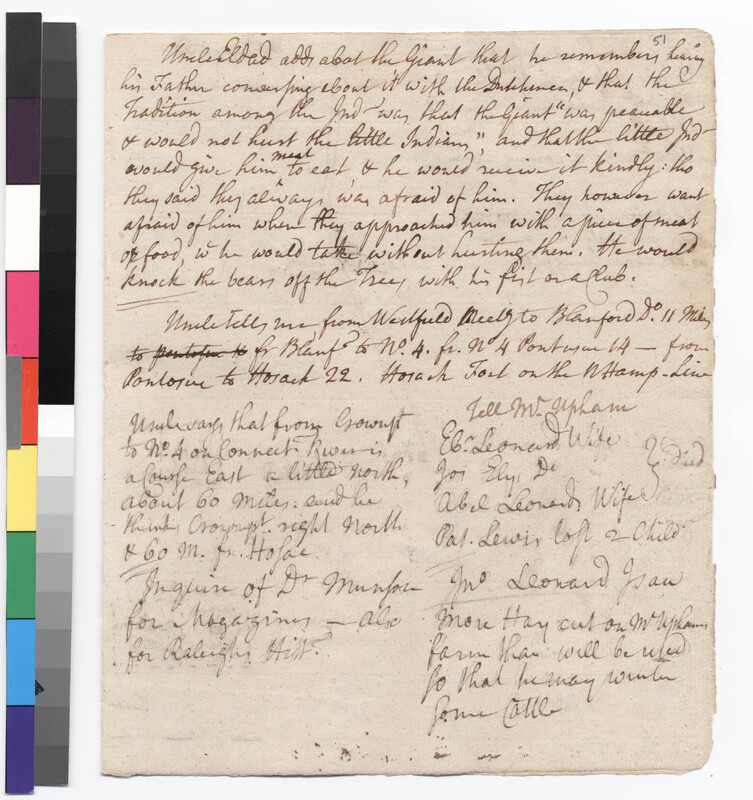 51
Uncle Eldad adds abot the Giant that he remembers hearing
his Father conversing about it with the Dutchmen, & that the
Tradition among the Inds was that the Giant "was peaceable
& would not hurt the little Indians", and that the little Inds
would give him meat to eat, & he would receive it kindly: tho
they said they always was afraid of him. They however want
afraid of him when they approached him with a piece of meat
or food, wc he would take without hurting them. He would
knock the bears off the Trees with his fist or a Club.
Uncle Tells me from Westfield Meetg to Blanford Do. 11 Miles
to pontosuc 16 fr Blanfd to No. 4. fr. No 4 Pontusuc 14 — from
Pontosuc to Hosack 22. Hosack Fort on the NHamp-Line
Uncle says that from Crownpt
to No. 4 on Connect. River is
a Course East a little North,
about 60 miles: and he
thinks Crownpt. right North
& 60 M. fr. Hosac.
Inquire of Dr Munson
for Magazines — also
for Raleighs Histy.
Tell Mr. Upham
Ebr. Leonard Wife
Jos Ely, Do
Died
Abel Leonards Wife
Pat. Lewis lost 2 Child
Jno Leonard I saw
More Hay cut on Mr Uphams
farm than will be used
so that he may winter
some Cattle